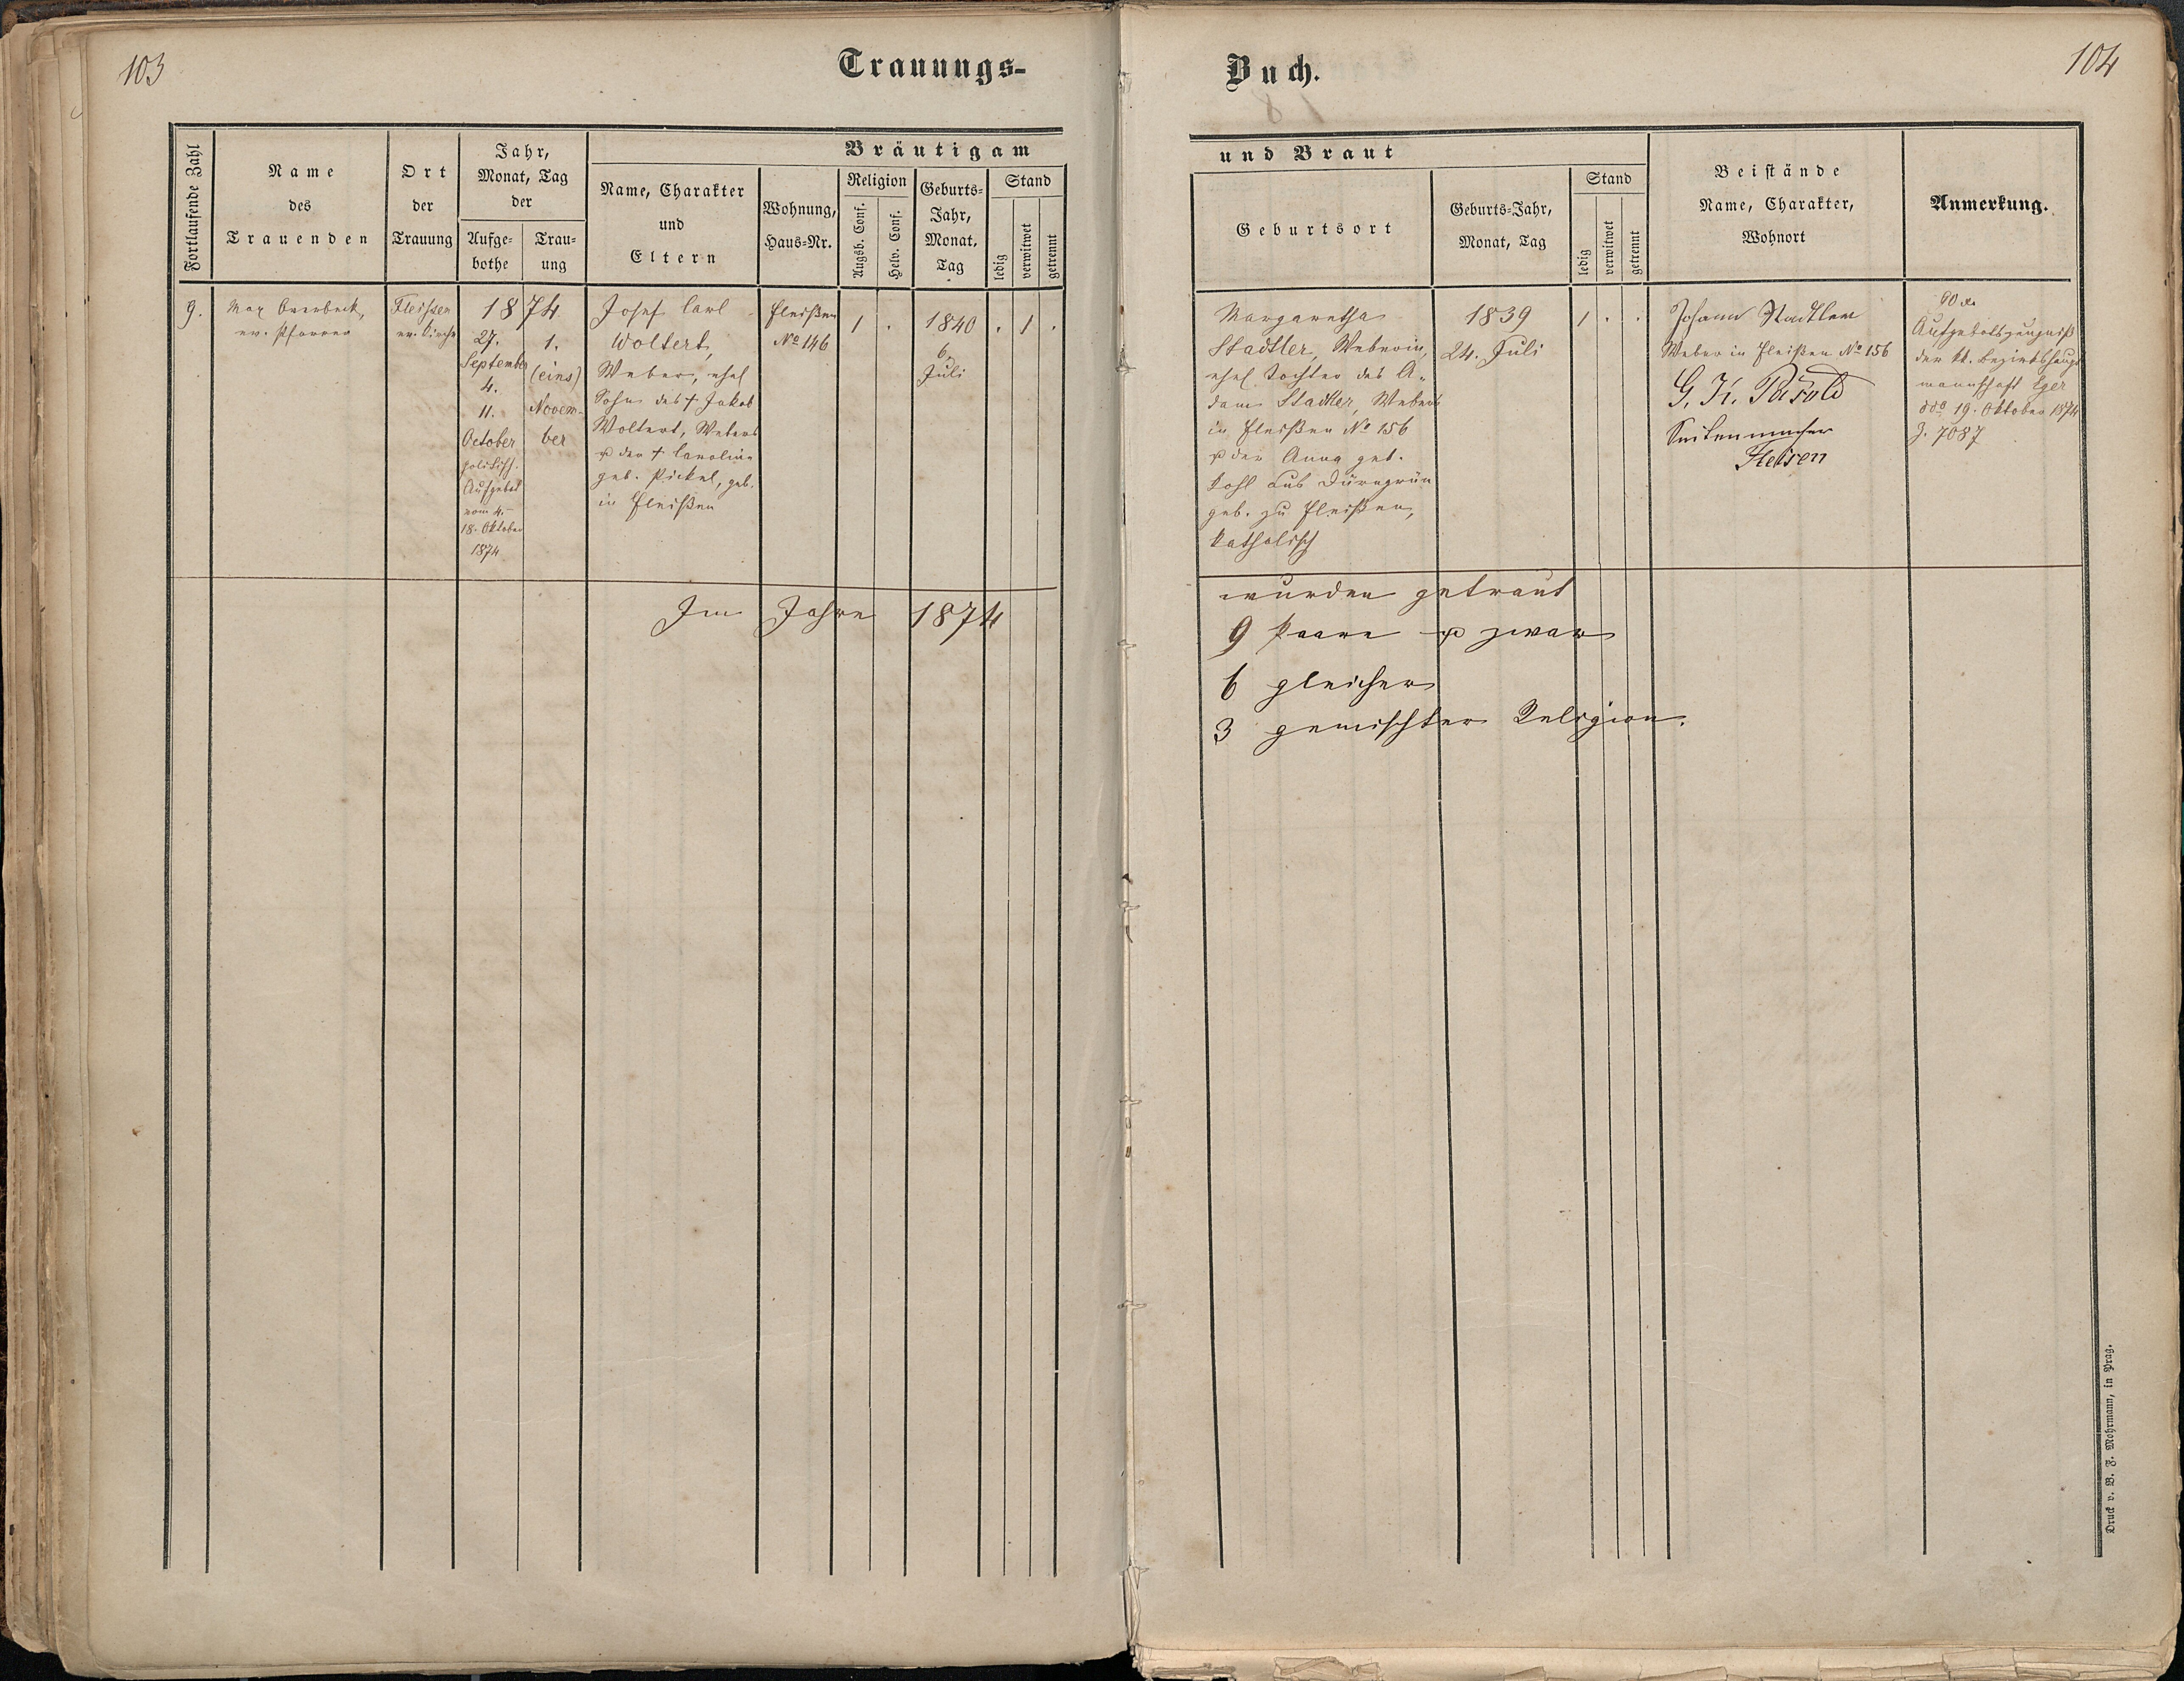 103
Trauungs-
Fortlaufende Zahl
Name
des
Trauenden
Ort
der
Trauung
Jahr,
Monat, Tag
der
Aufge-
bothe
Trau-
ung
Bräutigam
Name, Charakter
und
Eltern
Wohnung,
Haus-Nr.
Religion
Augsb. Conf.
Helv. Conf.
Geburts-
Jahr,
Monat,
Tag
Stand
ledig
verwitwet
getrennt
9.
Max Overbeck,
ev. Pfarrer
Fleissen
ev. Kirche
1874
27.
September
4.
11.
October
Aufgebot
vom 4.–
18. Oktober
1874
1.
(eins)
Novem-
ber
Josef Carl
Woltert,
Weber, ehel
Sohn des † Jakob
Woltert, Webers
u der † Caroline
geb. Pickel, geb.
in Fleißen
Fleißen
No 146
1 .
1840
6.
Juli
. 1 .
Im Jahre 1874
Buch.
104
und Braut
Geburtsort
Geburts-Jahr,
Monat, Tag
Stand
ledig
verwitwet
getrennt
Beistände
Name, Charakter,
Wohnort
Anmerkung.
Margaretha
Stadtler, Weberin,
ehel Tochter des A-
dam Stadtler, Webers
in Fleißen No 156
u der Anna geb.
Pohl aus Dürngrün
geb. zu Fleißen,
katholisch
1839
24. Juli
1 . .
Johann Stadtler
Weber in Fleißen No 156
G. K.
Fleisen
Aufgebotszeugniß
der kk. Bezirkshaupt
mannschaft Eger
ddo 19. Oktober 1874
Z. 7087
wurden getraut
9 Paare u zwar
6 gleicher
3 gemischter Religion.
Druck v. B. F. Mohrmann, in Prag.